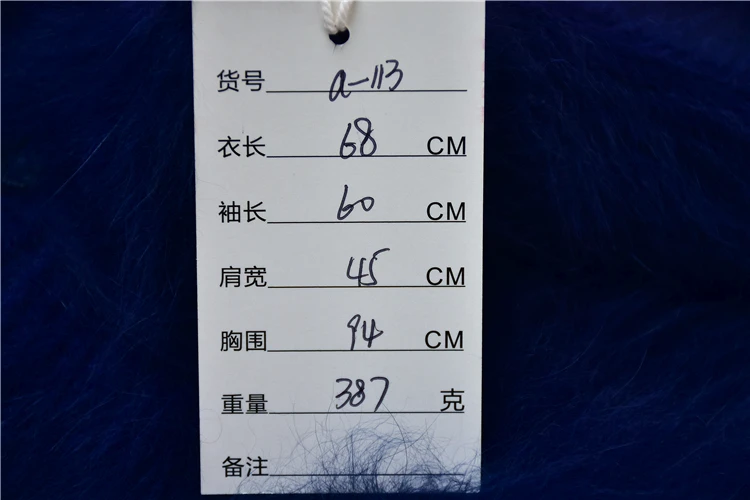 货号 a-113
衣长 68 CM
袖长 60 CM
肩宽 45 CM
胸围 94 CM
重量 387 克
备注